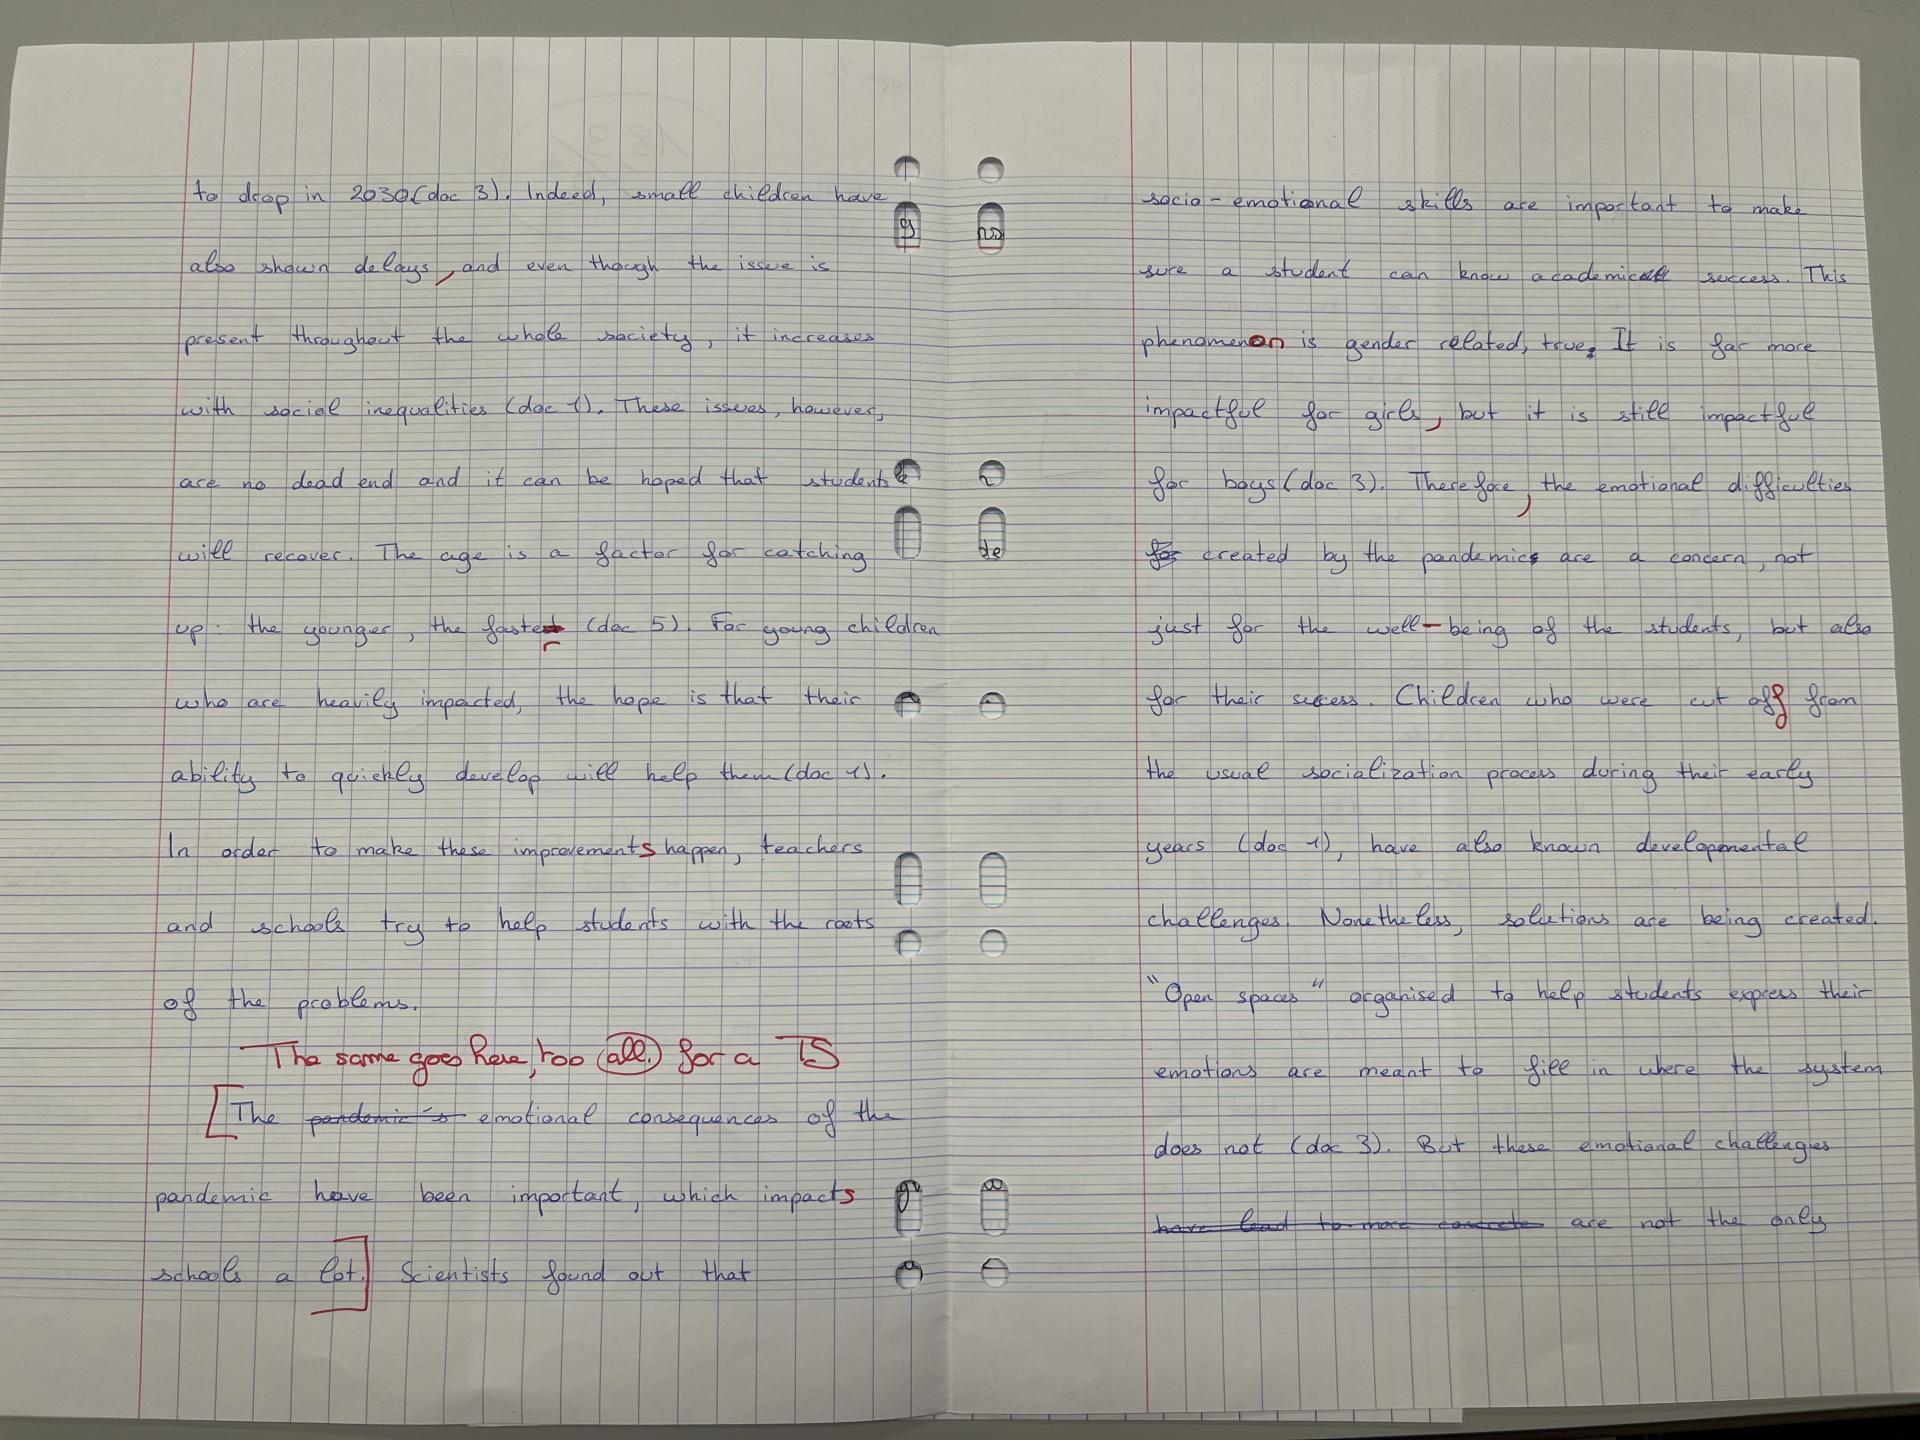 to drop in 2030(doc 3). Indeed, small children have
also shown delays, and even though the issue is
present throughout the whole society, it increases
with social inequalities (doc 1). These issues, however,
are no dead end and it can be hoped that students
will recover. The age is a factor for catching
up: the younger, the faster (doc 5). For young children
who are heavily impacted, the hope is that their
ability to quickly develop will help them (doc 1).
In order to make these improvements happen, teachers
and schools try to help students with the roots
of the problems.
The same goes here, too all. for a TS
[The pandemic's emotional consequences of the
pandemic have been important, which impacts
schools a lot.] Scientists found out that
socio-emotional skills are important to make
sure a student can know academic success. This
phenomenon is gender related, true. It is far more
impactful for girls, but it is still impactful
for boys (doc 3). Therefore, the emotional difficulties
for created by the pandemics are a concern, not
just for the well-being of the students, but also
for their success. Children who were cut off from
the usual socialization process during their early
years (doc 1), have also known developmental
challenges. Nonetheless, solutions are being created.
"Open spaces" organised to help students express their
emotions are meant to fill in where the system
does not (doc 3). But these emotional challenges
have lead to more concrete are not the only